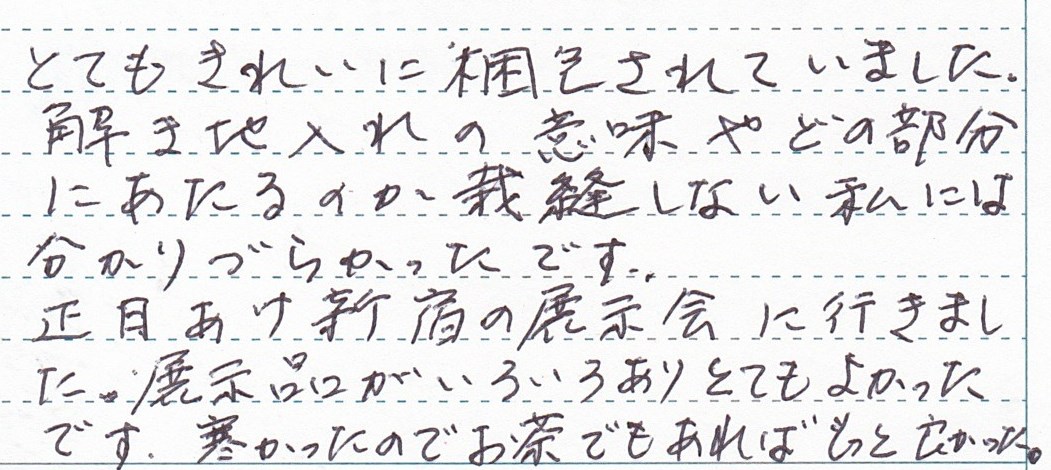 とてもきれいに梱包されていました。
解き地入れの意味やどの部分
にあたるのか裁縫しない私には
分かりづらかったです。
正月あけ新宿の展示会に行きまし
た。展示品がいろいろありとてもよかった
です。寒かったのでお茶でもあればもっと良かった。